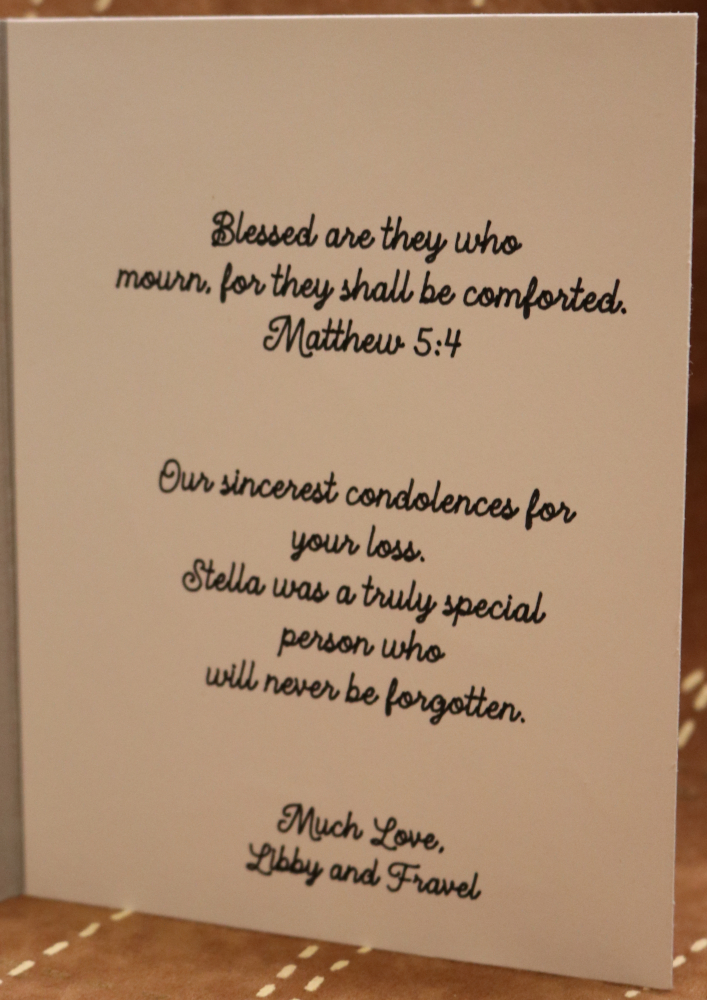 Blessed are they who
mourn, for they shall be comforted.
Matthew 5:4
Our sincerest condolences for
your loss.
Stella was a truly special
person who
will never be forgotten.
Much Love,
Libby and Fravel